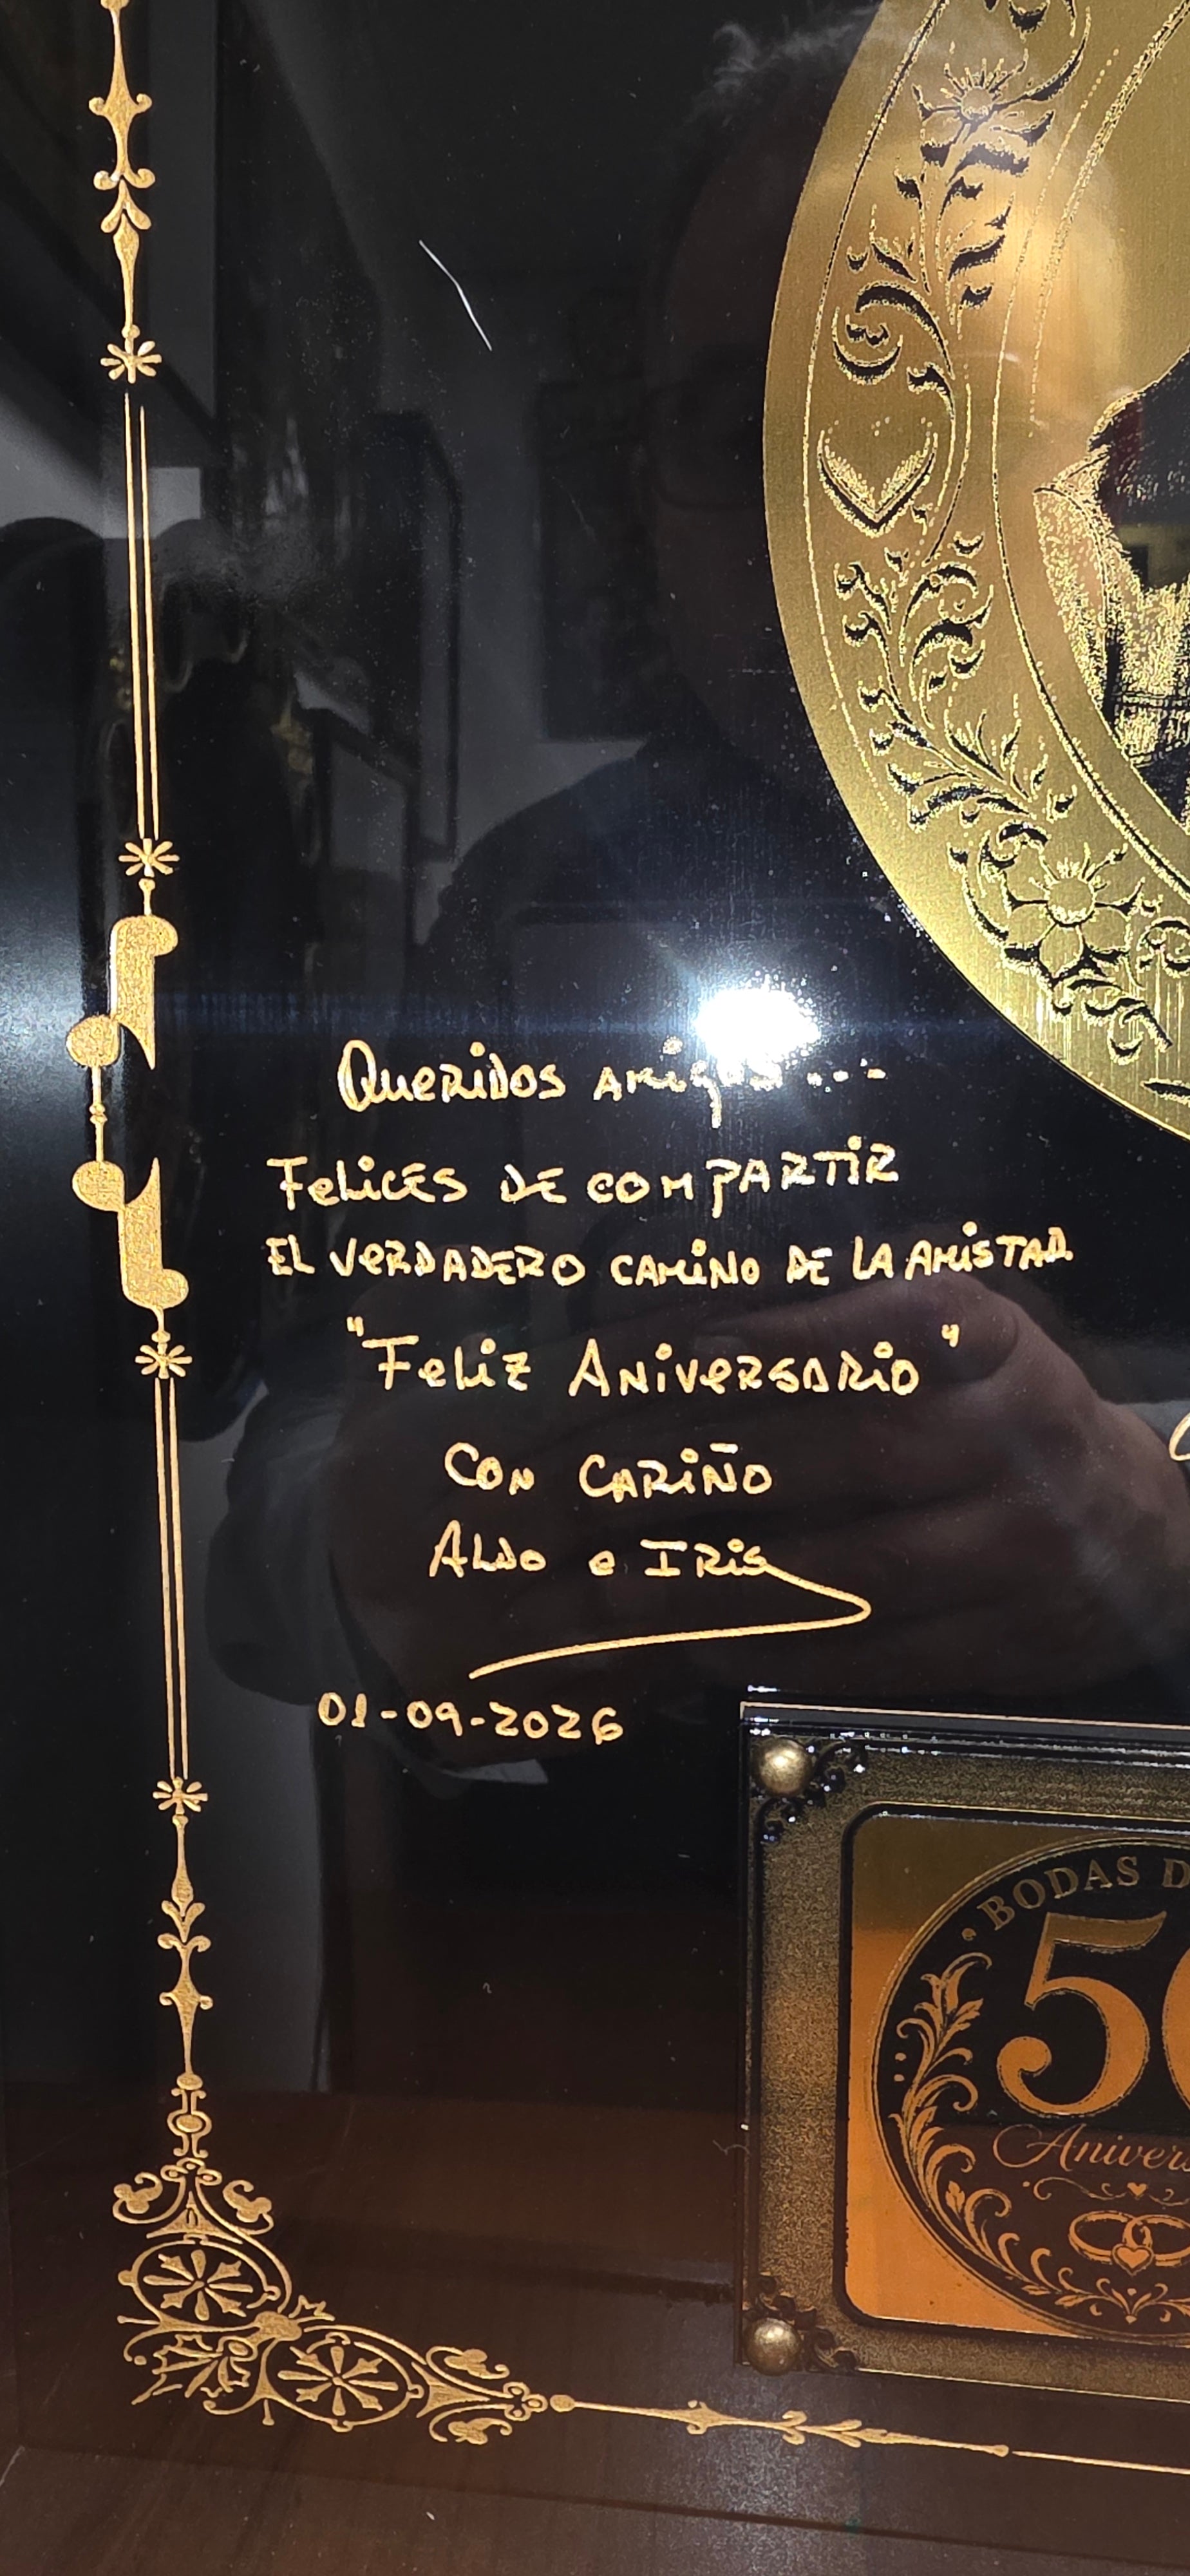 Queridos amigos ...
Felices de compartir
el verdadero camino de la amistad.
"Feliz Aniversario"
Con cariño
Aldo e Iris
01-09-2026
BODAS
50